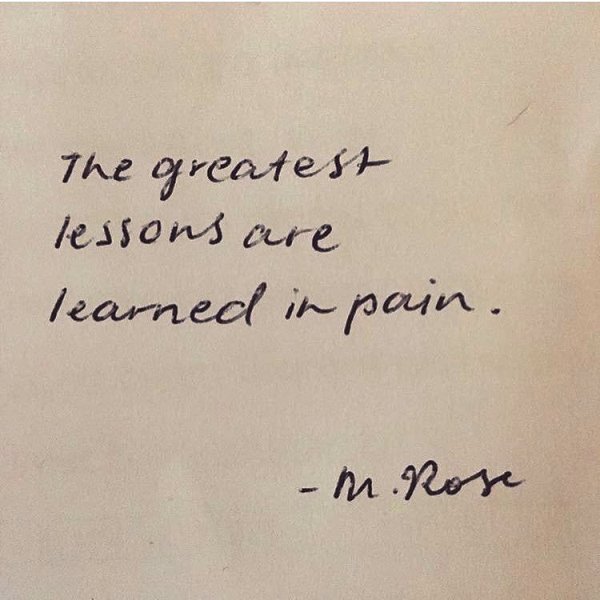 The greatest
lessons are
learned in pain.
- M. Rose